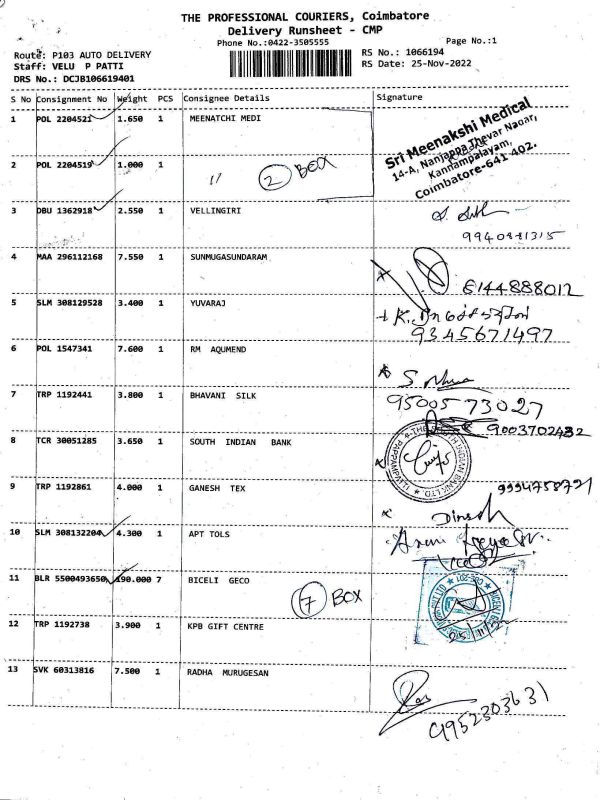 THE PROFESSIONAL COURIERS, Coimbatore
Delivery Runsheet - CMP
Phone No.:0422-3505555
Page No.:1
Route: P103 AUTO DELIVERY
RS No.: 1066194
Staff: VELU P PATTI
RS Date: 25-Nov-2022
DRS No.: DCJB106619401
S No Consignment No Weight PCS Consignee Details Signature
1 POL 2204521 1.650 1 MEENATCHI MEDI
Sri Meenakshi Medical
14-A, Nanjappa Thevar Nagar,
Kannampalayam,
Coimbatore-641 402.
2 POL 2204519 1.000 1 " 2 BOX
3 DBU 1362918 2.550 1 VELLINGIRI
9940881315
4 MAA 296112168 7.550 1 SUNMUGASUNDARAM
8144888012
5 SLM 308129528 3.400 1 YUVARAJ
9345671497
6 POL 1547341 7.600 1 RM AQUMEND
7 TRP 1192441 3.800 1 BHAVANI SILK
9500573027
9003702432
8 TCR 30051285 3.650 1 SOUTH INDIAN BANK
9 TRP 1192861 4.000 1 GANESH TEX
9994758791
Dinesh
10 SLM 308132204 4.300 1 APT TOLS
11 BLR 5500493650 190.000 7 BICELI GECO
7 BOX
12 TRP 1192738 3.900 1 KPB GIFT CENTRE
13 SVK 60313816 7.500 1 RADHA MURUGESAN
9952303631